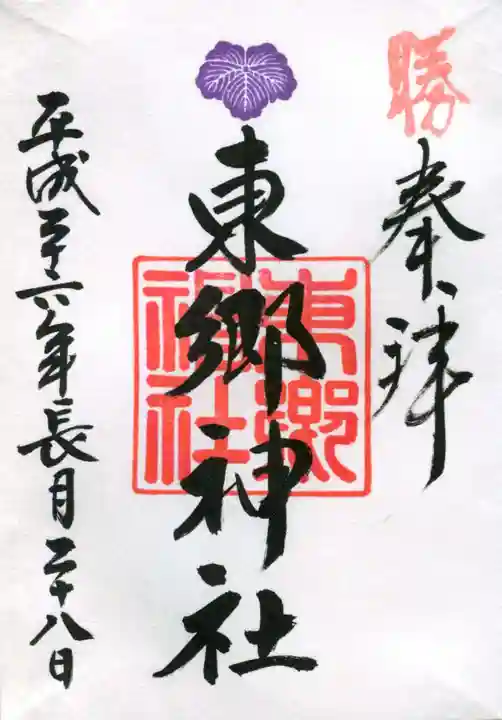 勝
奉拝
東郷神社
東郷神社
平成二十六年長月二十八日